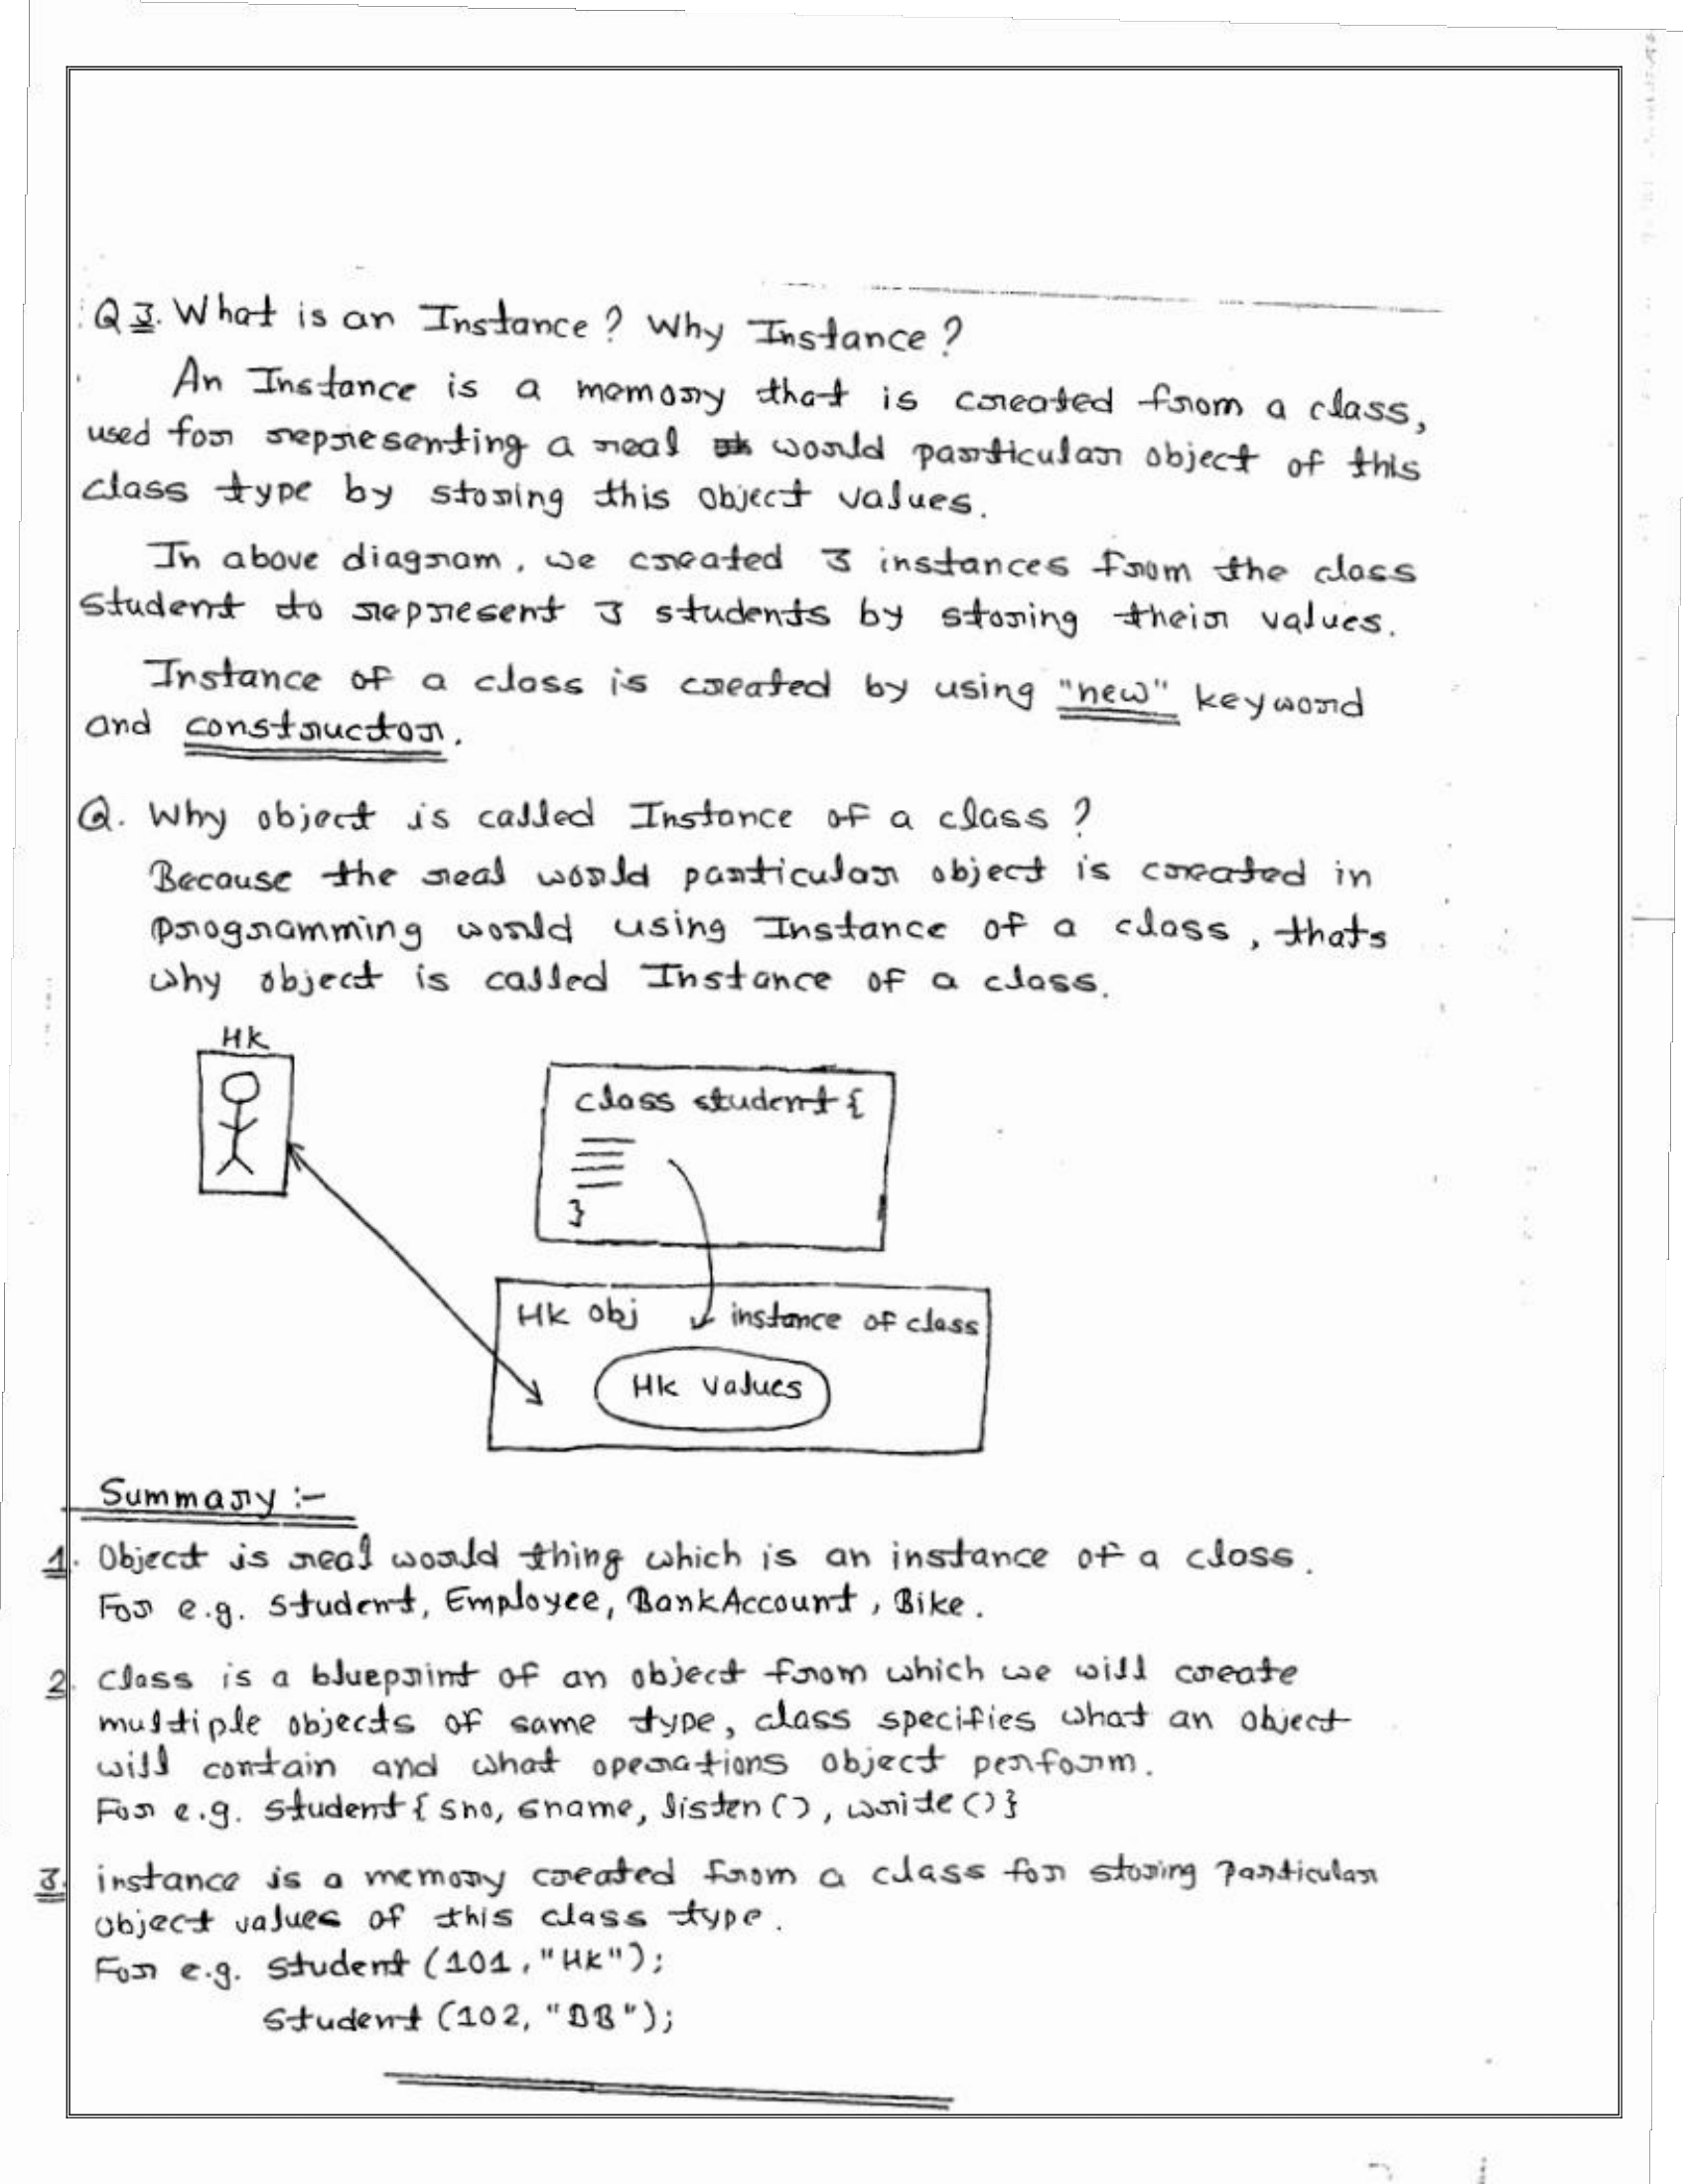 Q3. What is an Instance? Why Instance?
An Instance is a memory that is created from a class,
used for representing a real world particular object of this
class type by storing this object values.
In above diagram, we created 3 instances from the class
student to represent 3 students by storing their values.
Instance of a class is created by using "new" keyword
and constructor.
Q. Why object is called Instance of a class?
Because the real world particular object is created in
programming world using Instance of a class, thats
why object is called Instance of a class.
HK
class student {
}
HK obj
instance of class
HK values
Summary :-
1. Object is real world thing which is an instance of a class.
For e.g. Student, Employee, BankAccount, Bike.
2. Class is a blueprint of an object from which we will create
multiple objects of same type, class specifies what an object
will contain and what operations object perform.
For e.g. Student { sno, sname, listen(), write() }
3. instance is a memory created from a class for storing particular
object values of this class type.
For e.g. Student (101, "HK");
Student (102, "BB");